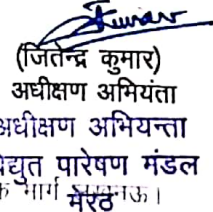 (जितेन्द्र कुमार)
अधीक्षण अभियंता
अधीक्षण अभियन्ता
विद्युत पारेषण मंडल
मेरठ
मार्ग